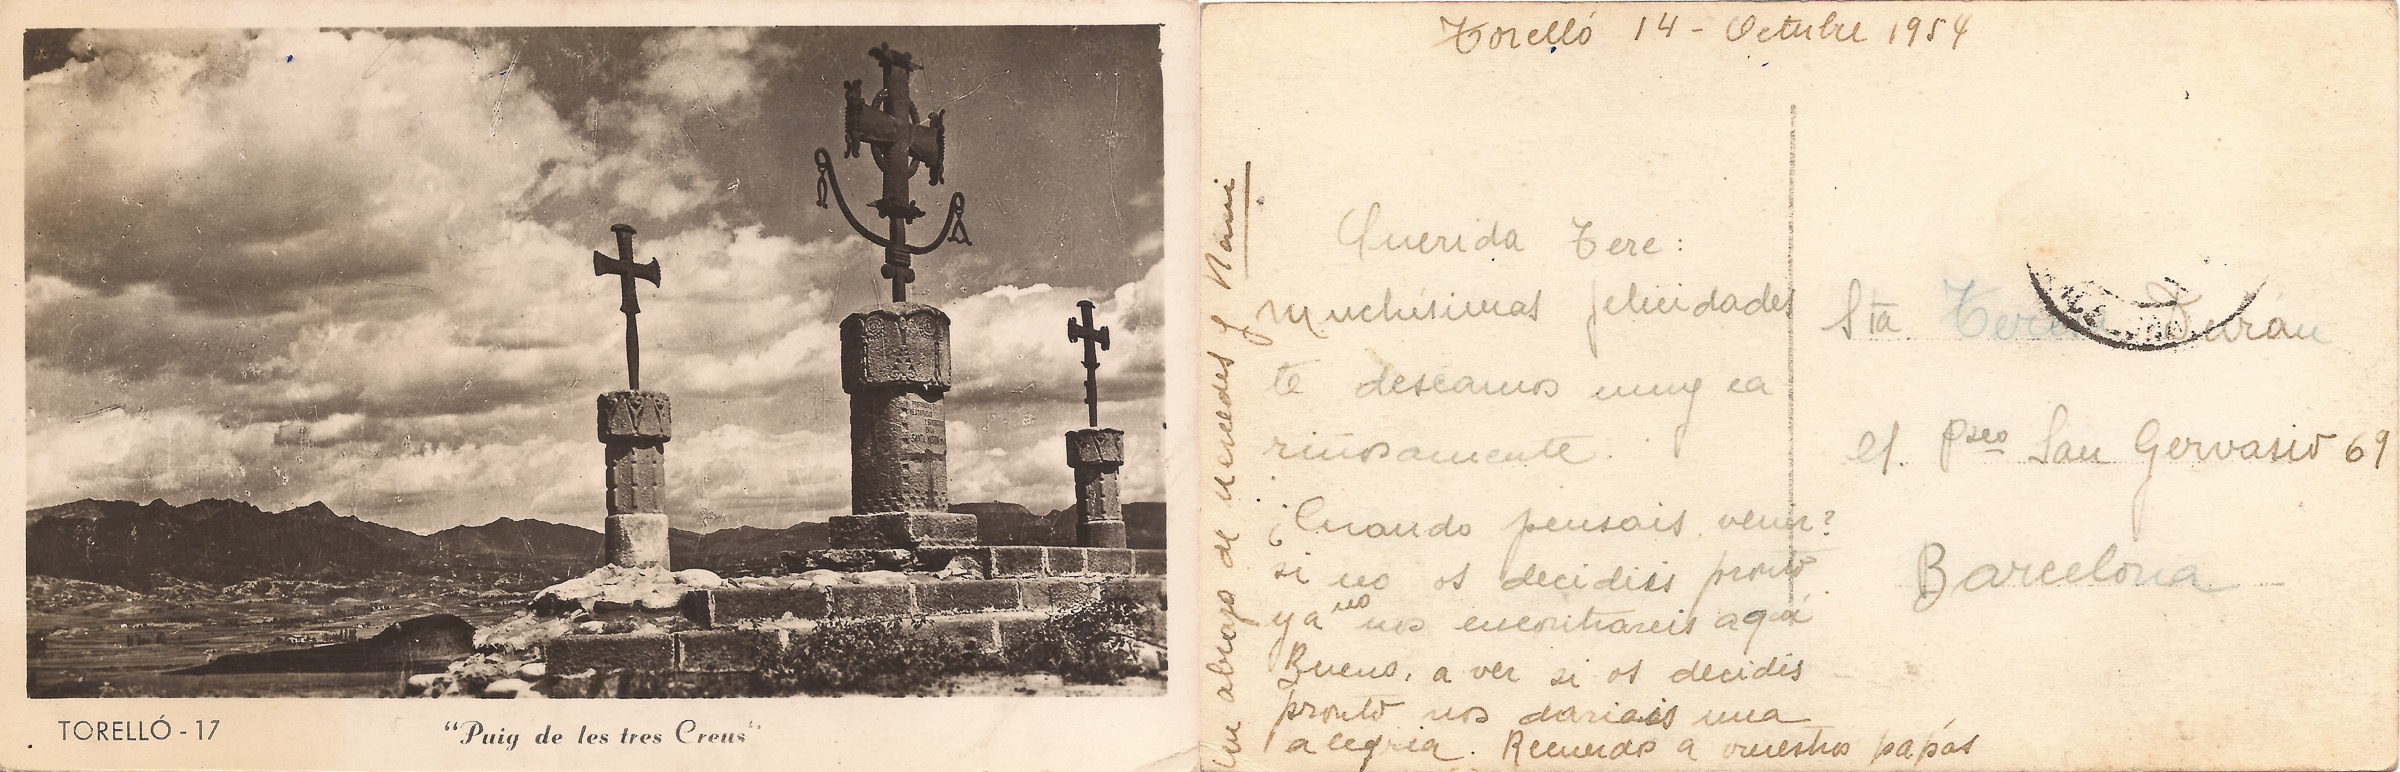 TORELLÓ - 17
"Puig de les tres Creus"
SANTA MISIÓN
Torelló 14 - Octubre 1954
Querida Tere:
Muchísimas felicidades
te deseamos muy ca
riñosamente.
¿Cuando pensais venir?
si no os decidiis pronto
ya no nos encontrareis aquí
Bueno, a ver si os decidis
pronto nos dariais una
alegria. Recuerdos a vuestros papás
Un abrazo de Mercedes y Nani
Sta Teresa Durán
Pseo San Gervasio 69
Barcelona